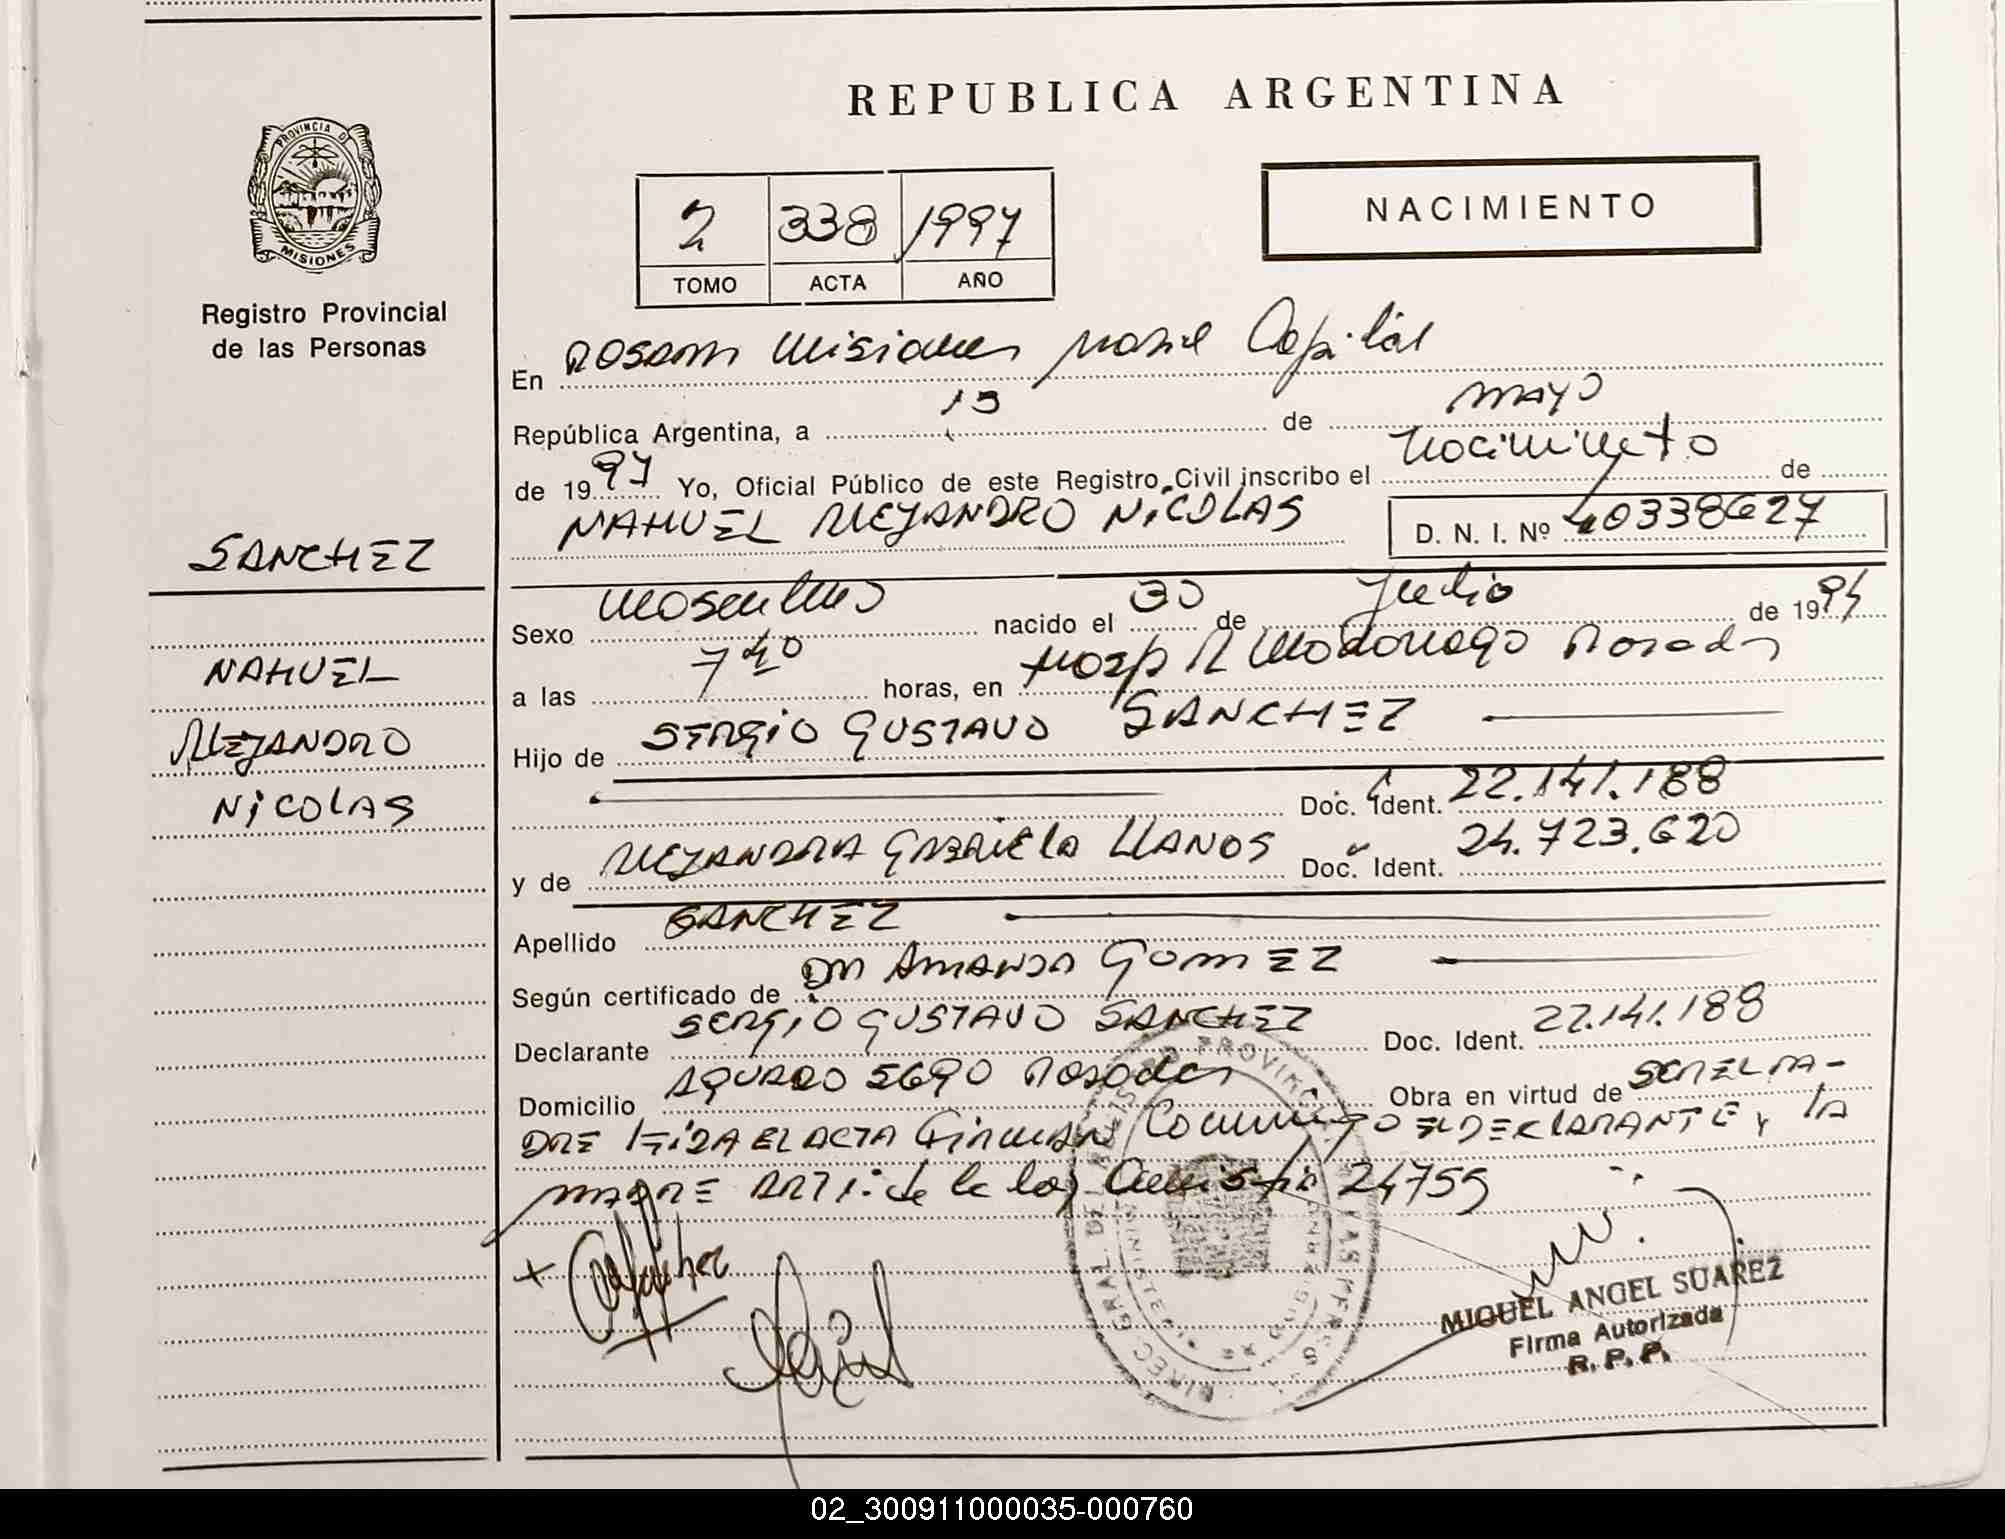 REPUBLICA ARGENTINA
PROVINCIA DE
MISIONES
Registro Provincial
de las Personas
2 338 1997
TOMO ACTA AÑO
NACIMIENTO
En Posadas Misiones Capital
República Argentina, a 13 de MAYO
de 1997 Yo, Oficial Público de este Registro Civil inscribo el Nacimiento de
NAHUEL ALEJANDRO NICOLAS D. N. I. Nº 40338627
SANCHEZ
NAHUEL
ALEJANDRO
NICOLAS
Sexo Masculino nacido el 30 de Julio de 1994
a las 7 40 horas, en Hosp R Madariaga Posadas
Hijo de SERGIO GUSTAVO SANCHEZ
Doc. Ident. 22.141.188
y de ALEJANDRA GABRIELA LLANOS Doc. Ident. 24.723.620
Apellido SANCHEZ
Según certificado de DRA AMANDA GOMEZ
Declarante SERGIO GUSTAVO SANCHEZ Doc. Ident. 22.141.188
Domicilio 5690 Posadas Obra en virtud de SER EL PA-
DRE LEIDA EL ACTA FIRMAN Conmigo EL DECLARANTE Y LA
MADRE ART 1: de la ley 24755
MIGUEL ANGEL SUAREZ
Firma Autorizada
R. P. P.
02_300911000035-000760